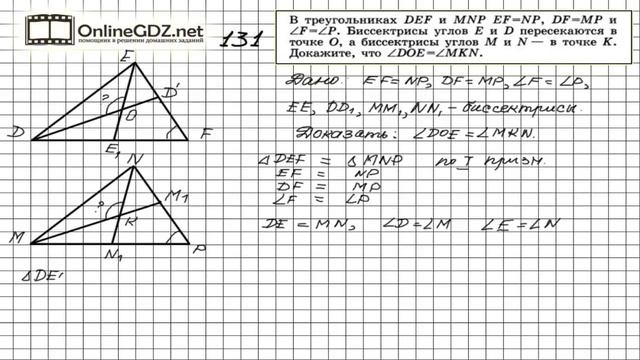 OnlineGDZ.net
помощник в решении домашних заданий
131
В треугольниках DEF и MNP EF=NP, DF=MP и
∠F=∠P. Биссектрисы углов E и D пересекаются в
точке O, а биссектрисы углов M и N — в точке K.
Докажите, что ∠DOE=∠MKN.
Дано: EF=NP, DF=MP, ∠F=∠P,
EE, DD1, MM1, NN1 - биссектрисы.
Доказать: ∠DOE=∠MKN.
△DEF = △MNP по I призн.
EF = NP
DF = MP
∠F = ∠P
DE=MN, ∠D=∠M ∠E=∠N
E
?
D'
O
D
E1
F
N
?
M1
K
M
N1
P
△DE'